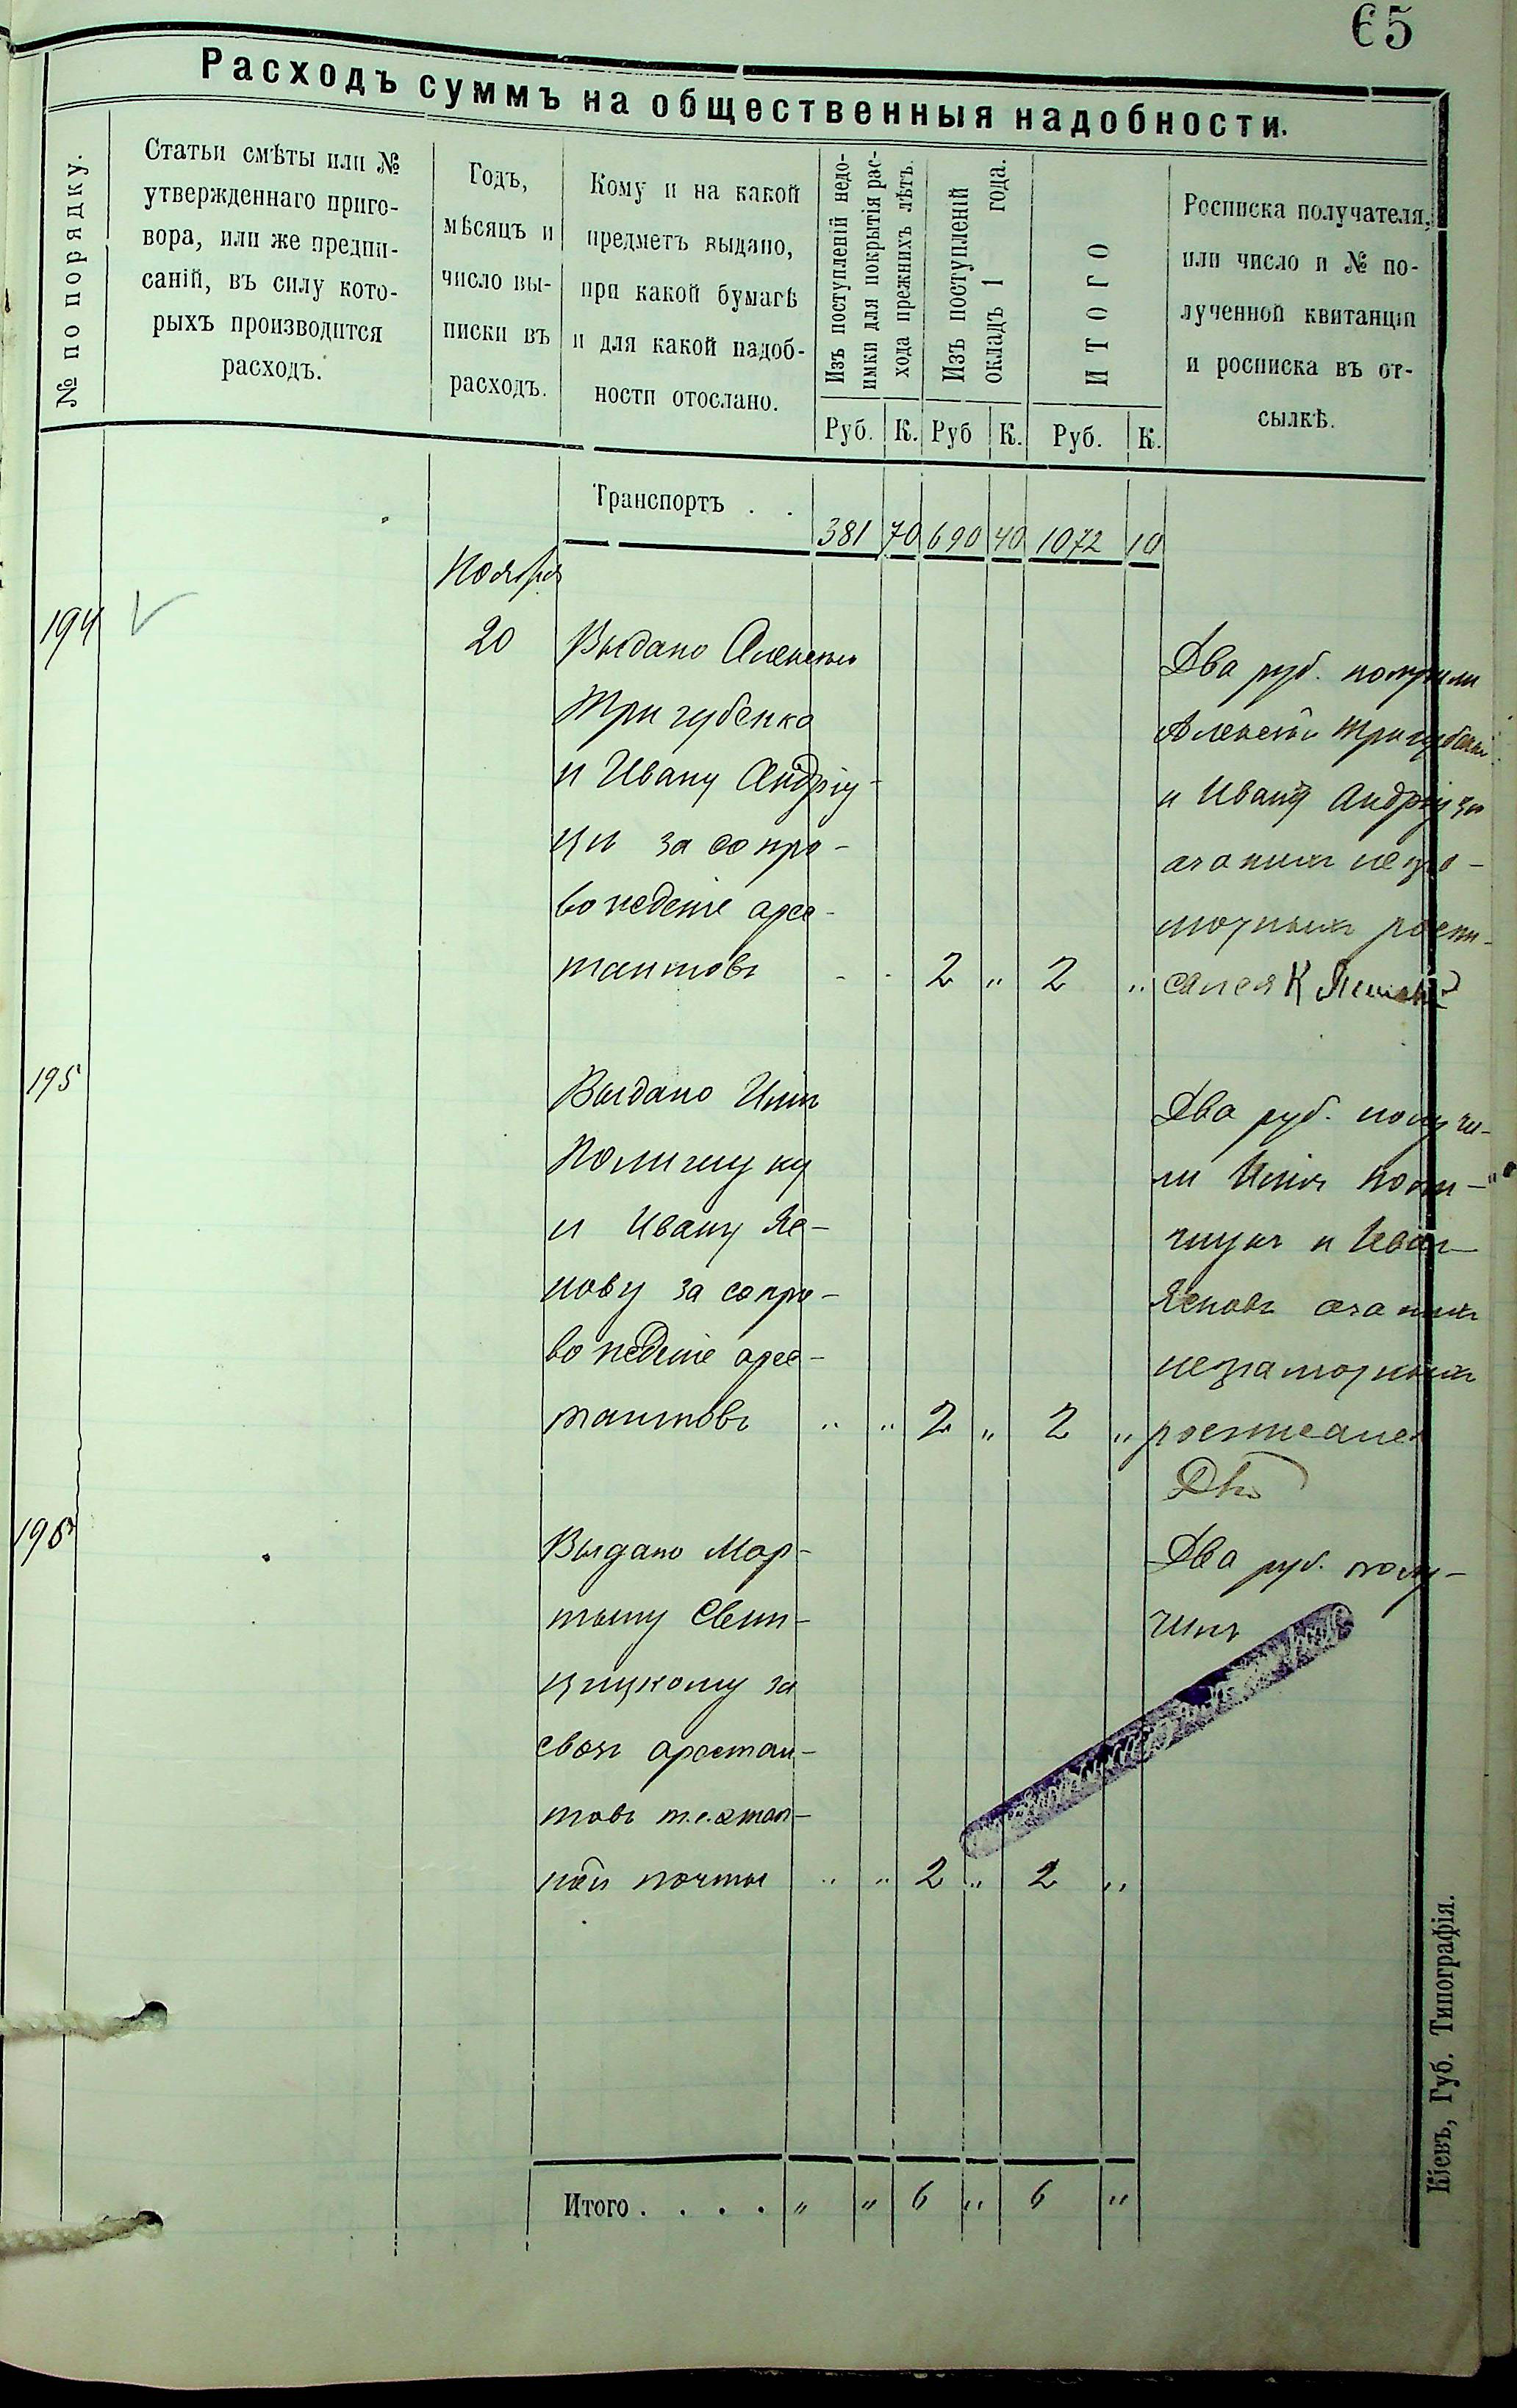 65
Расходъ суммъ на общественныя надобности.
№ по порядку.
Статьи смѣты или №
утвержденнаго приго-
вора, или же предпи-
саній, въ силу кото-
рыхъ производится
расходъ.
Годъ,
мѣсяцъ и
число вы-
писки въ
расходъ.
Кому и на какой
предметъ выдано,
при какой бумагѣ
и для какой надоб-
ности отослано.
Изъ поступленій недо-
имки для покрытія рас-
хода прежнихъ лѣтъ.
Изъ поступленій
окладъ 1 года.
ИТОГО
Росписка получателя,
или число и № по-
лученной квитанціи
и росписка въ от-
сылкѣ.
Руб. К. Руб К. Руб. К.
Транспортъ . . 381 70 690 40 1072 10
Ноября
194 20
Выдано Алексею
Тригубенко
и Ивану Андрiу-
ци за сопро-
вожденіе арес-
тантовъ - - 2 „ 2 „
Два руб. получили
Алексей Тригубенко
и Иванъ
а за нихъ негра-
мотныхъ роспи-
сался К
195
Выдано
Полищуку
и Ивану Яс-
нову за сопро-
вожденіе арес-
тантовъ „ „ 2 „ 2 „
Два руб. получи-
ли Поли-
щукъ и Иванъ
Ясновъ а за нихъ
неграмотныхъ
росписался
196
Выдано Мар-
тыну Свин-
цицкому за
своз арестан-
товъ и этап-
ной почты „ „ 2 „ 2 „
Два руб. полу-
чилъ
Итого . . . . „ „ 6 „ 6 „
Кіевъ, Губ. Типографія.